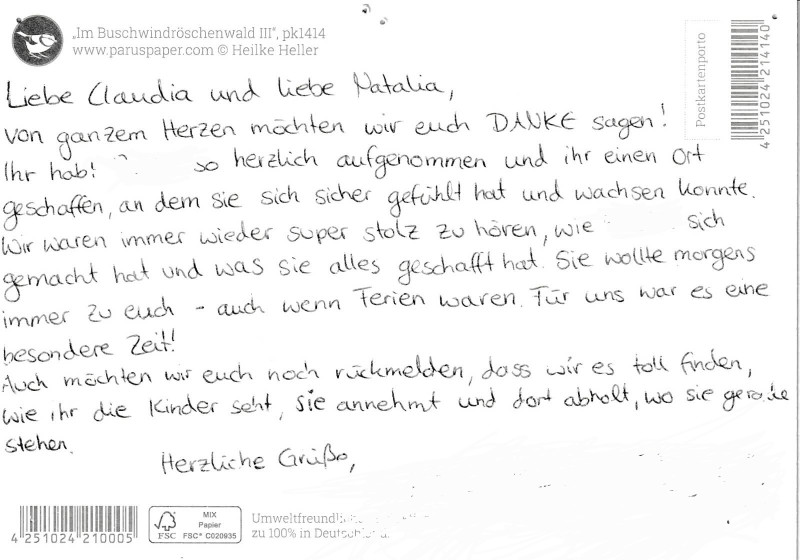 „Im Buschwindröschenwald III", pk1414
www.paruspaper.com © Heilke Heller
Postkartenporto
4 251024 214140
Liebe Claudia und liebe Natalia,
von ganzem Herzen möchten wir euch DANKE sagen!
Ihr hab! so herzlich aufgenommen und ihr einen Ort
geschaffen, an dem sie sich sicher gefühlt hat und wachsen konnte.
Wir waren immer wieder super stolz zu hören, wie sich
gemacht hat und was sie alles geschafft hat. Sie wollte morgens
immer zu euch - auch wenn Ferien waren. Für uns war es eine
besondere Zeit!
Auch möchten wir euch noch rückmelden, dass wir es toll finden,
wie ihr die Kinder seht, sie annehmt und dort abholt, wo sie gerade
stehen.
Herzliche Grüße,
4 251024 210005
FSC
MIX
Papier
FSC® C020935
Umweltfreundlich
zu 100% in Deutschland